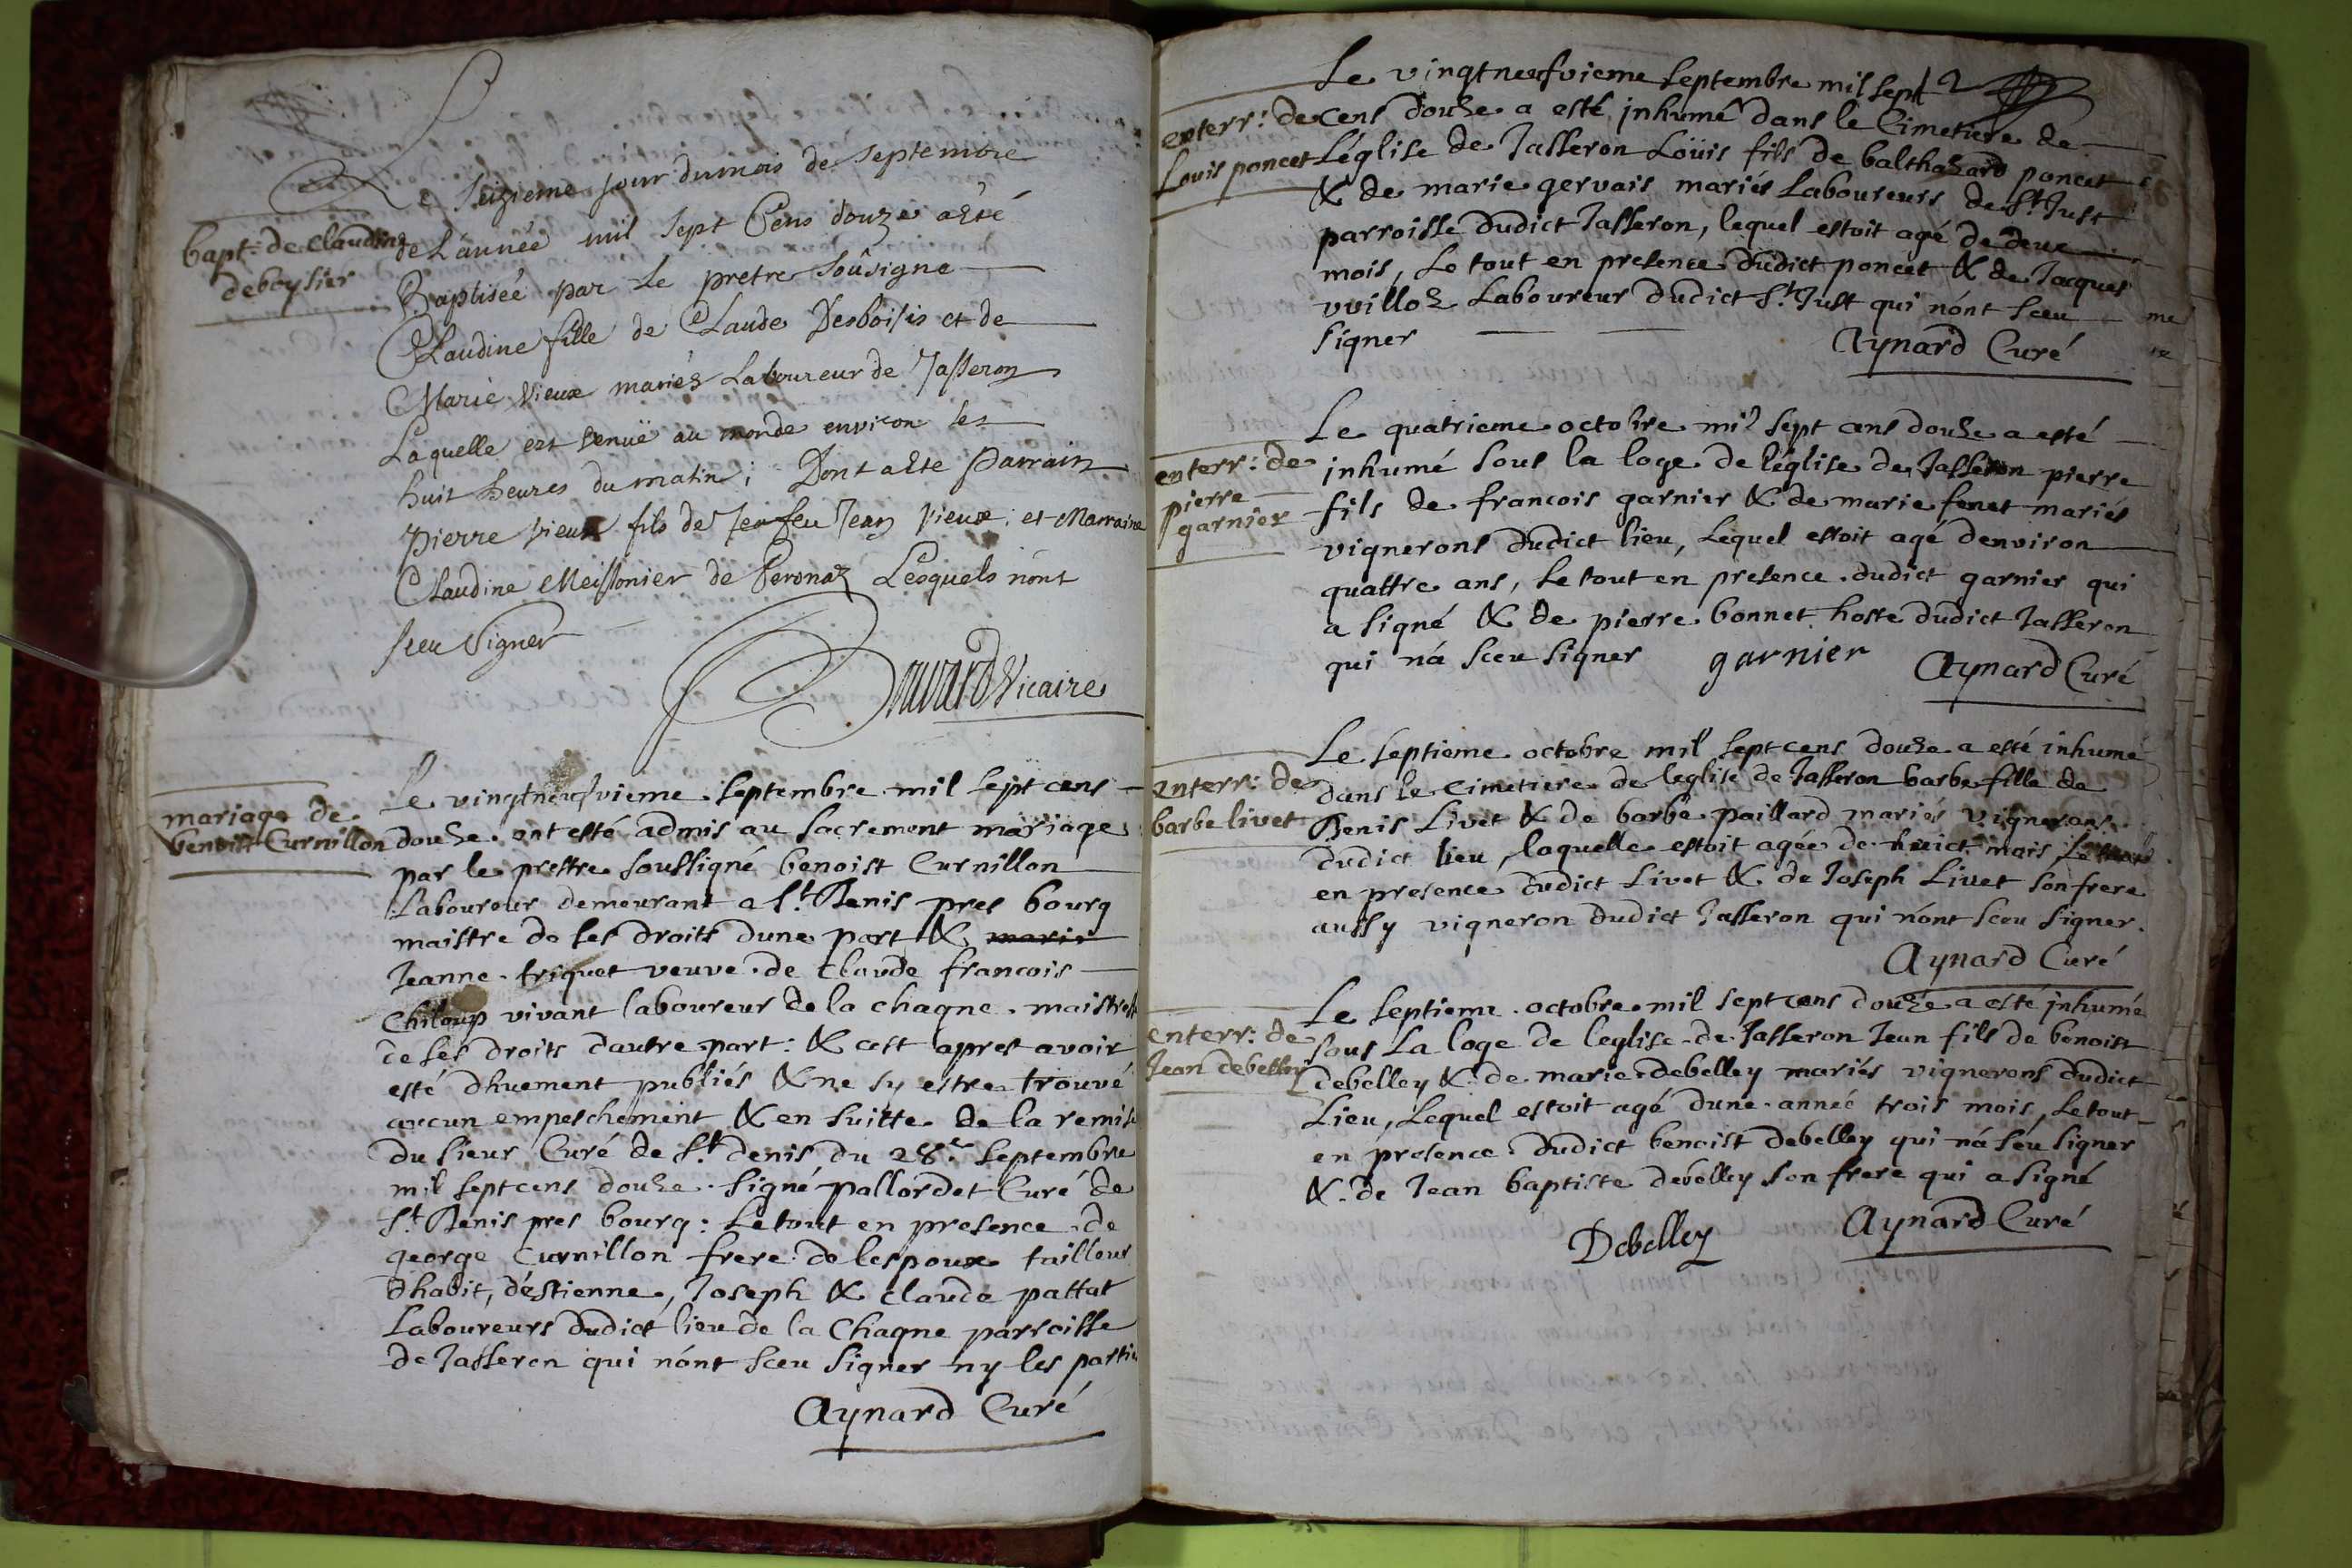 bapt: de Claudine
deboysier
Le seizieme jour du mois de Septembre
de L'année mil sept Cens douze a été
Baptiseé par Le pretre soûsigne
Claudine fille de Claude Desboisis et de
Marie Vieux mariés Laboureur de Jasseron
Laquelle est venuë au monde environ les
huit heures du matin; Dont acte Parrain
Pierre vieux fils de feu Jean Vieux; et Marraine
Claudine Meissonier de Peronaz Lesquels n'ont
sceu Signer
Vicaire
mariage de
benoist Curnillon
Le vingtneufvieme Septembre mil sept cens
douze ont esté admis au sacrement mariage
par le prestre soussigné benoist Curnillon
Laboureur demeurant a St. Denis pres bourg
maistre de ses droits dune part & marie
Jeanne triquet veuve de Claude francois
Chiloup vivant laboureur de la chagne maistresse
de ses droits dautre part: & cest apres avoir
esté dhuement publiés & ne sy estre trouvé
aucun empeschement & en suitte de la remise
du sieur Curé de St. denis du 28e Septembre
mil sept cens douze signé pallordet Curé de
St. Denis pres bourg: Le tout en presence de
george Curnillon frere de lespoux tailleur
dhabit, d'éstienne, Joseph & claude pattat
Laboureurs dudict lieu de la Chagne parroisse
de Jasseron qui n'ont sceu signer ny les parties
Aynard Curé
enterr: de
Louis poncet
Le vingtneufvieme septembre mil sept
cens douze a esté inhumé dans le Cimetiere de
Léglise de Jasseron Loüis fils de balthazard poncet
& de marie gervais mariés Laboureurs de St. Just
parroisse dudict Jasseron, lequel estoit agé de deux
mois, Le tout en presence dudict poncet & de Jacques
vvilloz Laboureur dudict St. Just qui n'ont sceu
signer
Aynard Curé
enterr: de
pierre
garnier
Le quatrieme octobre mil sept cens douze a esté
inhumé sous la loge de léglise de Jasseron pierre
fils de francois garnier & de marie fenet mariés
vignerons dudict lieu, Lequel estoit agé denviron
quattre ans, Le tout en presence dudict garnier qui
a signé & de pierre bonnet hoste dudict Jasseron
qui n'a sceu signer garnier
Aynard Curé
enterr: de
barbe livet
Le septieme octobre mil sept cens douze a esté inhumé
dans le Cimetiere de leglise de Jasseron barbe fille de
Denis Livet & de barbe paillard mariés vignerons
dudict lieu, laquelle estoit agée de huict mois Le tout
en presence dudict Livet & de Joseph Livet son frere
aussy vigneron dudict Jasseron qui n'ont sceu signer.
Aynard Curé
enterr: de
Jean debelley
Le septieme octobre mil sept cens douze a esté inhumé
sous La loge de leglise de Jasseron Jean fils de benoist
debelley & de marie debelley mariés vignerons dudict
Lieu, Lequel estoit agé dune année trois mois, Le tout
en presence dudict benoist debelley qui n'a séu signer
& de Jean baptiste debelley son frere qui a signé
Debelley
Aynard Curé